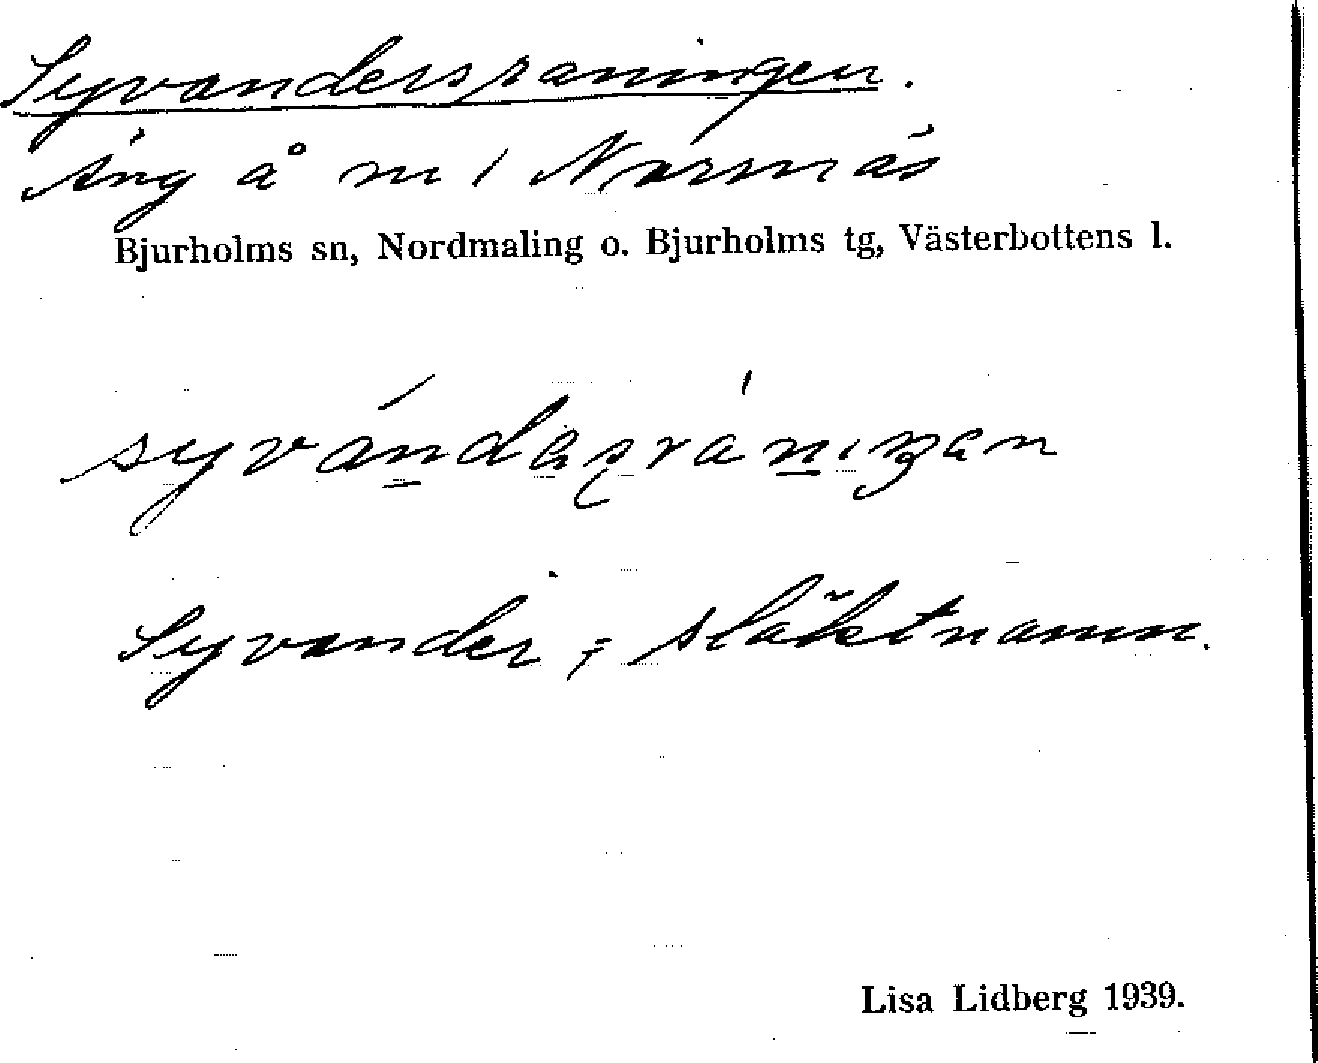 Syvandersraningen.
Äng å nr 1 Norrnäs
Bjurholms sn, Nordmaling o. Bjurholms tg, Västerbottens l.
Syvander, släktnamn.
Lisa Lidberg 1939.